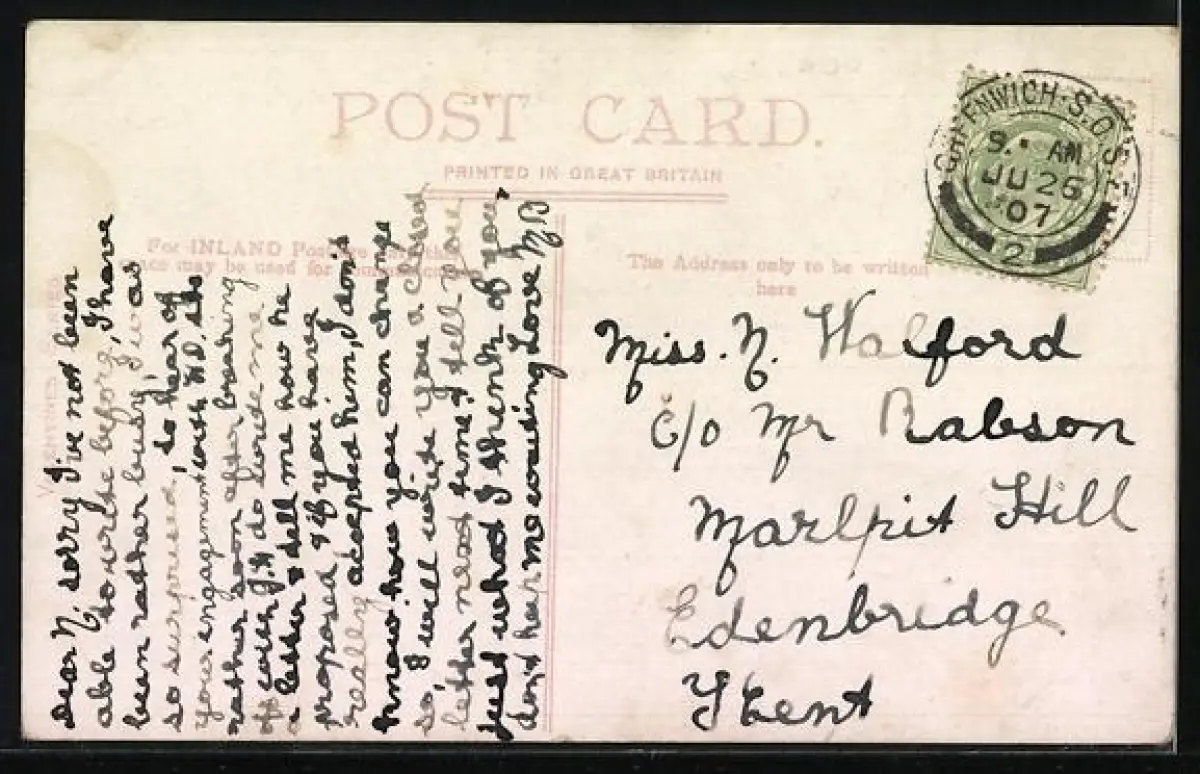 POST CARD.
PRINTED IN GREAT BRITAIN
For INLAND
may be used for
The Address only to be written
here
GREENWICH. S.O. S.E.
9. AM
JU 26
07
2
Dear N, sorry I've not been
able to write before, I have
been rather busy, I was
so surprised, to hear of
your engagement with
rather soon after breaking
of with J.H do write me
a letter & tell me how he
proposed & if you have
really accepted him, I don't
know how you can change
so, I will write you a closed
letter next time & tell you
just what I think of you,
don't keep me waiting Love
Miss. N. Walford
c/o Mr Rabson
Marlpit Hill
Edenbridge
Kent